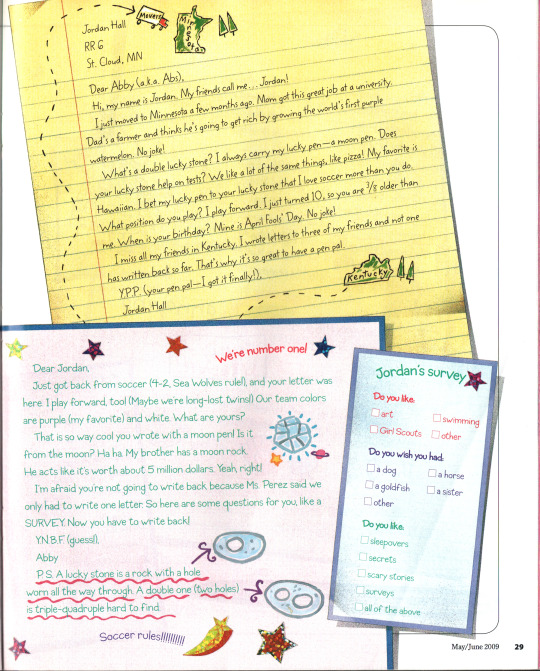 Jordan Hall
RR 6
St. Cloud, MN
Movers
Minnesota
Dear Abby (a.k.a. Abs),
Hi, my name is Jordan. My friends call me... Jordan!
I just moved to Minnesota a few months ago. Mom got this great job at a university.
Dad's a farmer and thinks he's going to get rich by growing the world's first purple
watermelon. No joke!
What's a double lucky stone? I always carry my lucky pen—a moon pen. Does
your lucky stone help on tests? We like a lot of the same things, like pizza! My favorite is
Hawaiian. I bet my lucky pen to your lucky stone that I love soccer more than you do.
What position do you play? I play forward. I just turned 10, so you are 3/8 older than
me. When is your birthday? Mine is April Fools' Day. No joke!
I miss all my friends in Kentucky. I wrote letters to three of my friends and not one
has written back so far. That's why it's so great to have a pen pal.
Y.P.P. (your pen pal—I got it finally!),
Jordan Hall
Kentucky
We're number one!
Dear Jordan,
Just got back from soccer (4-2, Sea Wolves rule!), and your letter was
here. I play forward, too! (Maybe we're long-lost twins!) Our team colors
are purple (my favorite) and white. What are yours?
That is so way cool you wrote with a moon pen! Is it
from the moon? Ha ha. My brother has a moon rock.
He acts like it's worth about 5 million dollars. Yeah, right!
I'm afraid you're not going to write back because Ms. Perez said we
only had to write one letter. So here are some questions for you, like a
SURVEY. Now you have to write back!
Y.N.B.F. (guess!),
Abby
P.S. A lucky stone is a rock with a hole
worn all the way through. A double one (two holes)
is triple-quadruple hard to find.
Soccer rules!!!!!!!!!!
Jordan's survey
Do you like:
art
swimming
Girl Scouts
other
Do you wish you had:
a dog
a horse
a goldfish
a sister
other
Do you like:
sleepovers
secrets
scary stories
surveys
all of the above
May/June 2009 29